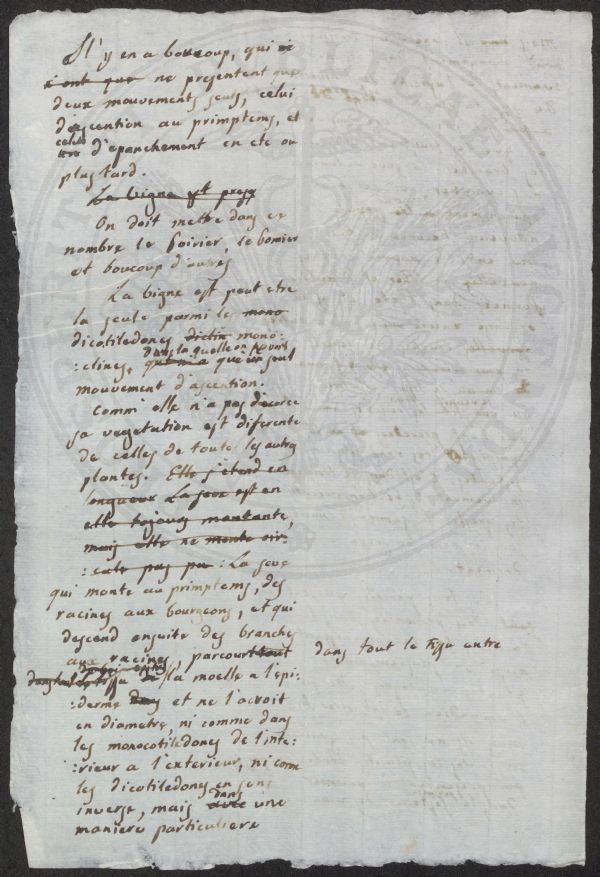 Il y en a boucoup, qui ne
n'ont que ne presentent que
deux mouvements seuls, celui
d'ascention au primptems, et
celui
d'epanchement en eté ou
plus tard.
La vigne est presq
On doit mettre dans ce
nombre le Poirier, le Pomier
et boucoup d'autres
La vigne est peut etre
la seule parmi les mono
dicotiledones diclin mono:
dans la quelle on trouve
:clines, qui n'a que un seul
mouvement d'ascention.
Comm' elle n'a pas d'ecorce
sa vegetation est diferente
de celles de toutes les autres
plantes. Elle s'etend en
longueur La seve est en
elle toujours montante,
mais elle ne monte cir:
:cule pas par : La seve
qui monte au primptems, des
racines aux bourgeons, et qui
descend ensuite des branches
aux racines, parcourt tout dans tout le tissu entre
la moelle a l'epi:
:derme dans et ne l'acroit
en diametre, ni comme dans
les monocotiledones de l'inte:
:rieur a l'exterieur, ni come
les dicotiledones en sens
dans
inverse, mais avec une
maniere particuliere